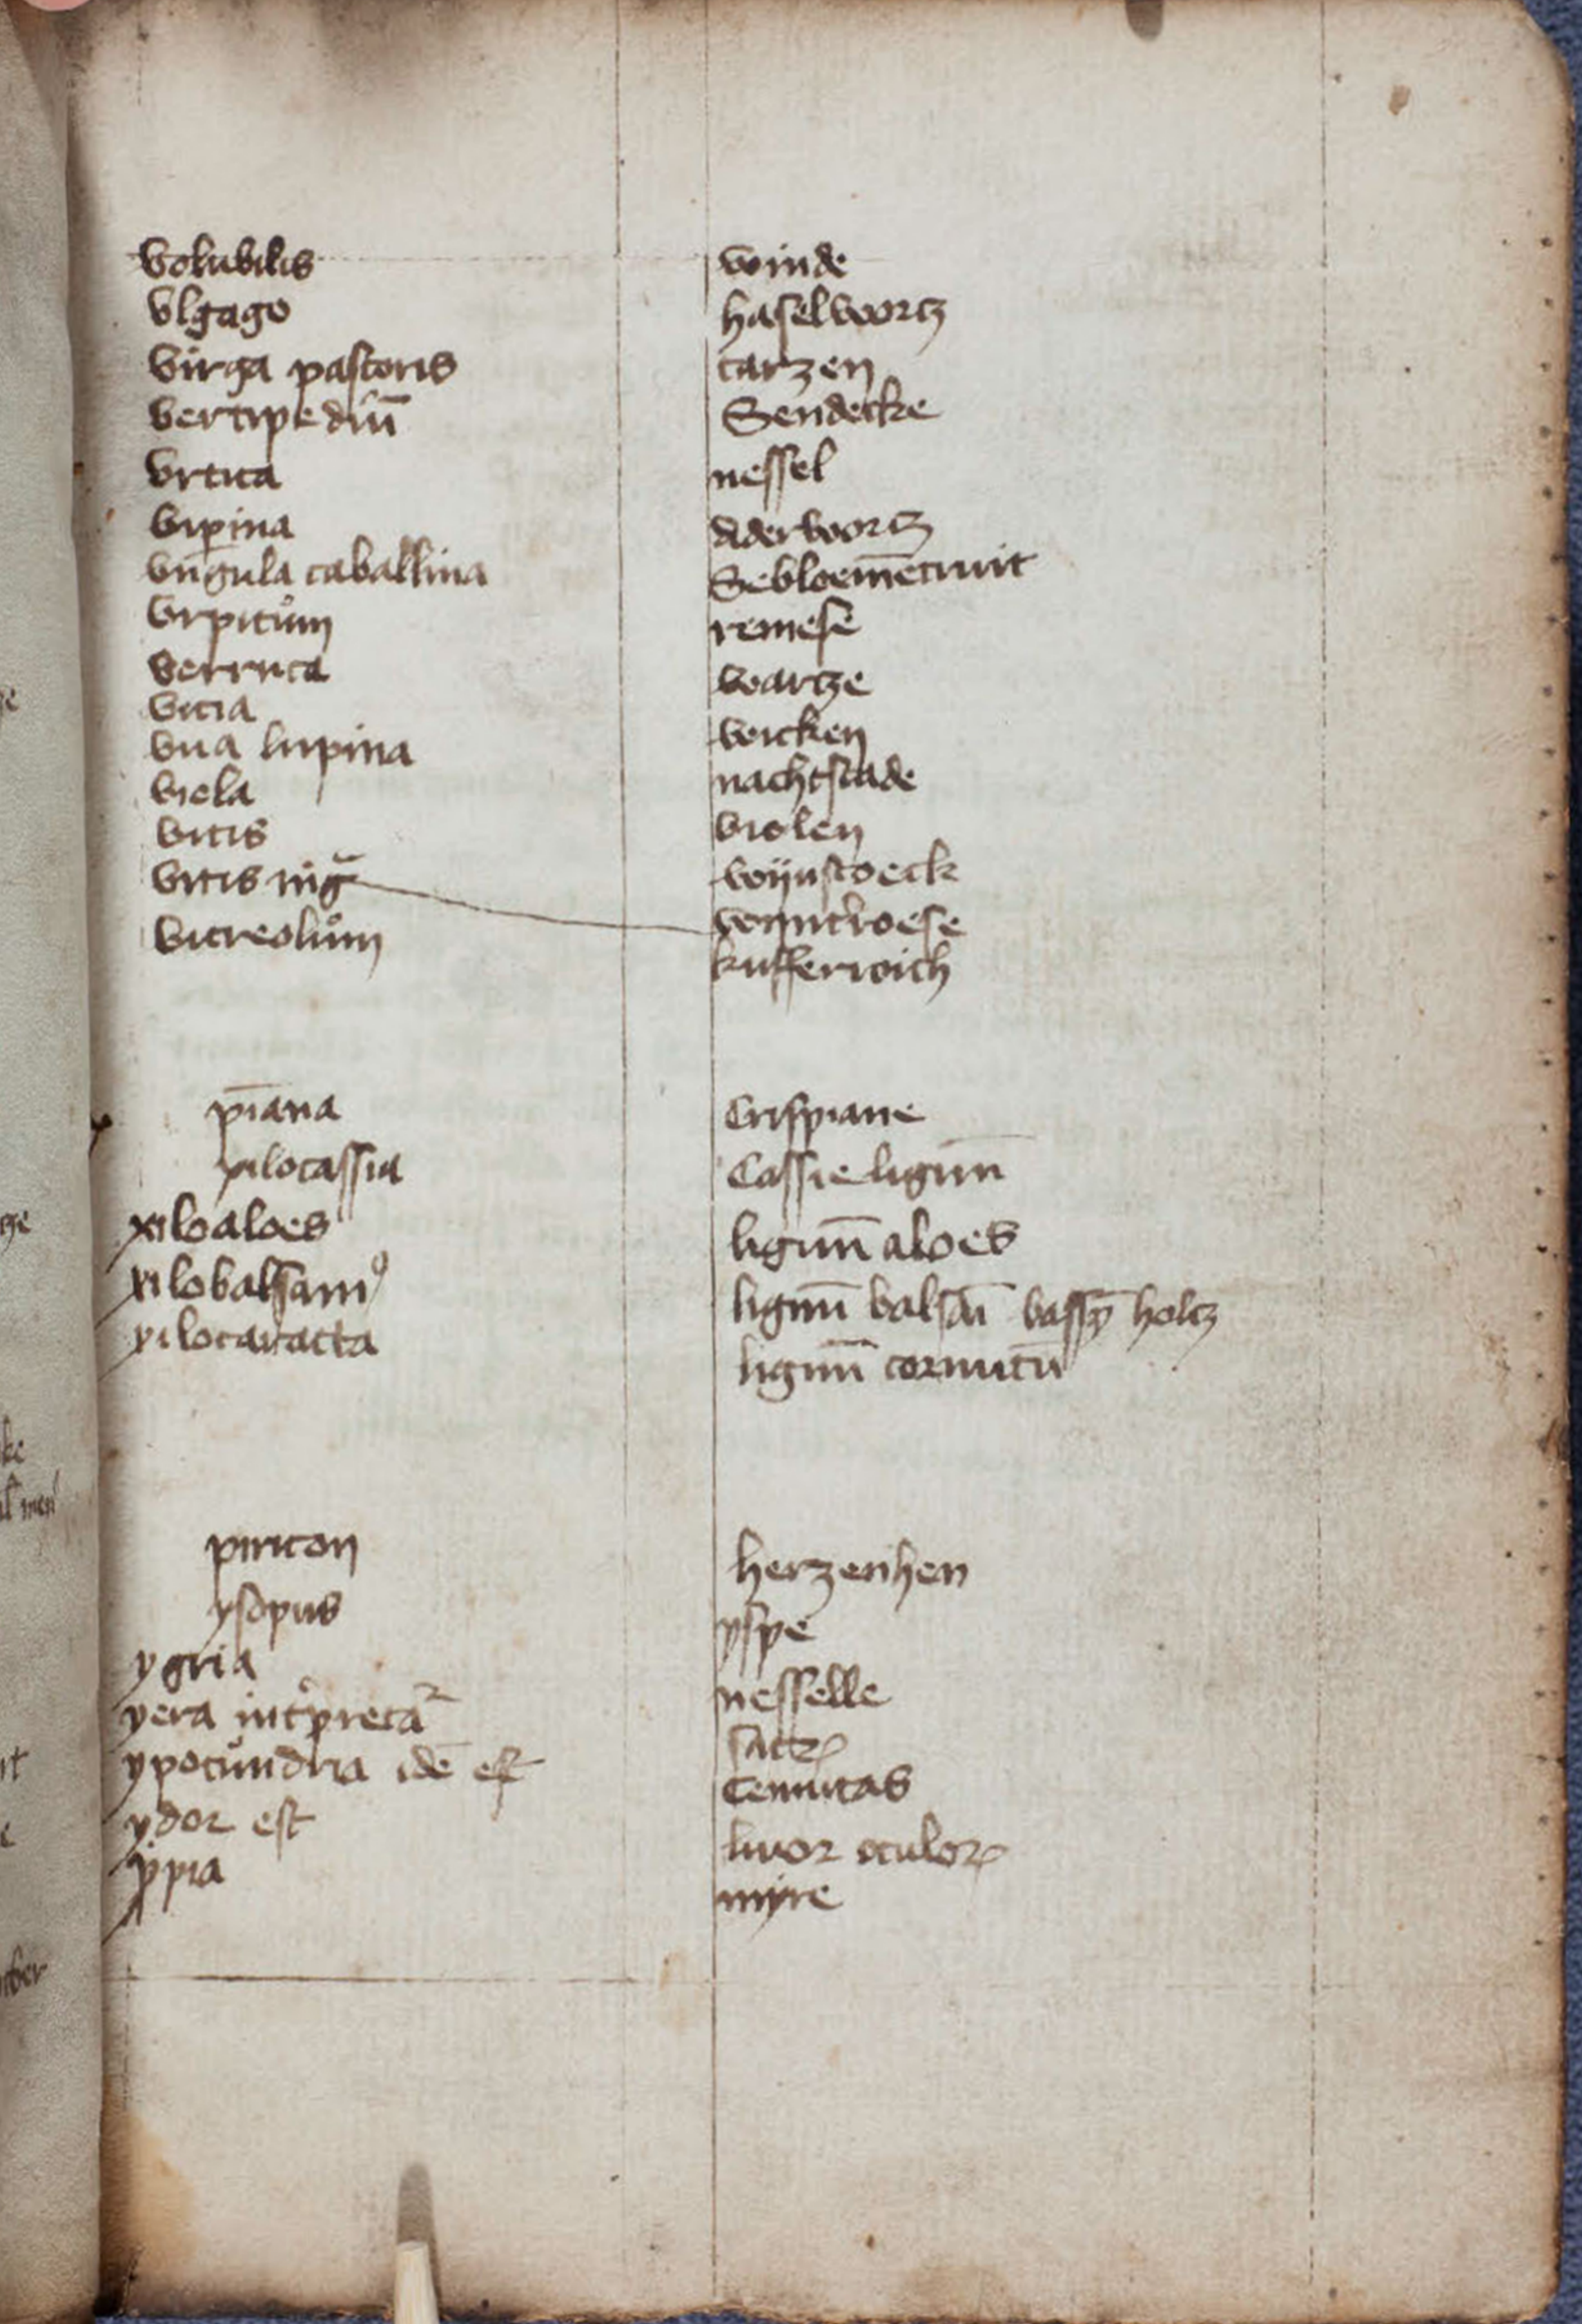 volubilis winde
vlgago haselwortz
virga pastoris carzen
vertipediū Sendecke
vrtica nessel
vipina aderwortz
vngula caballina Sebloemēcruit
vrpitům remese
verruca wartze
vicia wicken
vua lupina nachtscade
viola violen
vitis wijnstoeck
vitis nig̃
vitreolům kufferroich
pīana Crispiane
xilocassia Cassie lignū
xiloaloes lignū aloes
xilobalsamꝰ lignū balsāi holtz
xilocaracta lignū cornutū
piricon herzenhen
ysopus yspe
ygria nesselle
yera int̉pretať
ypocůndria idē est
ydor est livor oculoꝝ
yppia myre